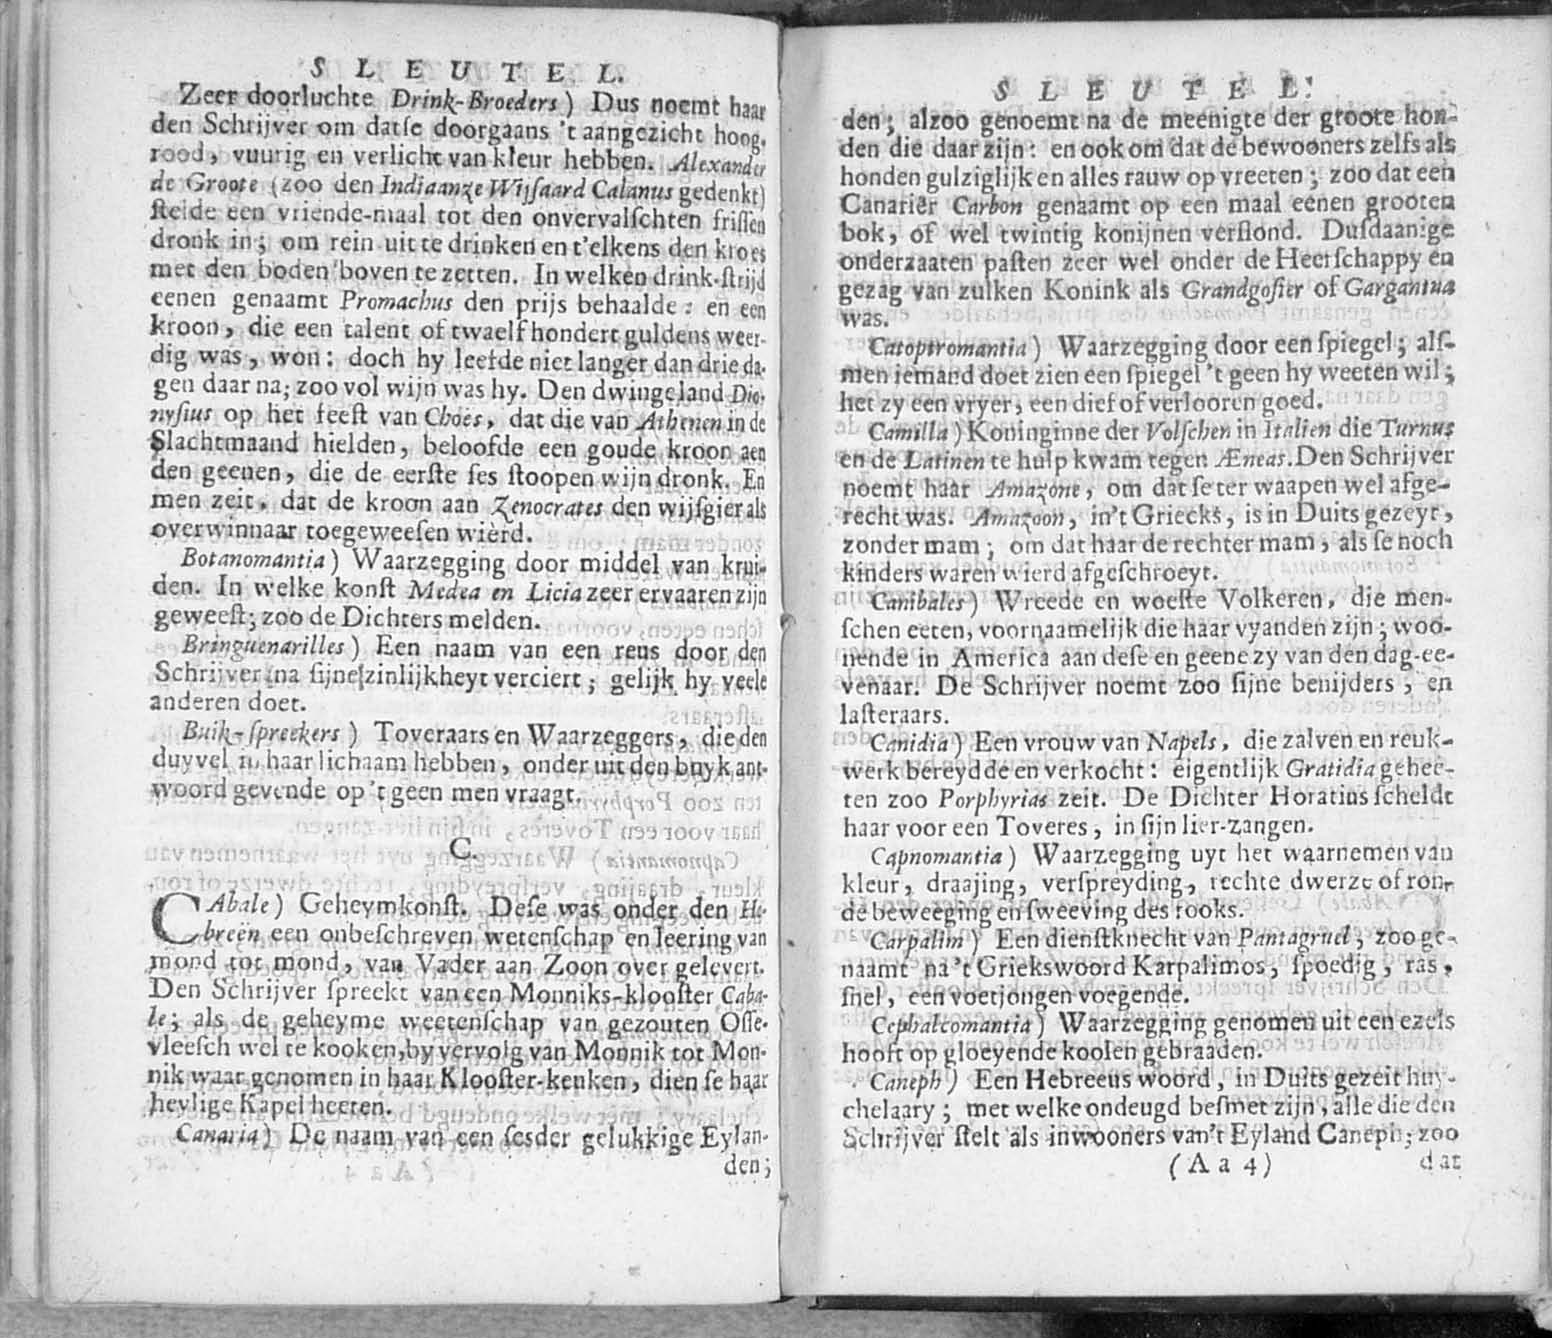 S L E U T E L.
Zeer doorluchte Drink-Broeders) Dus noemt haar
den Schrijver om datſe doorgaans 't aangezicht hoog,
rood, vuurig en verlicht van kleur hebben. Alexander
de Groote (zoo den Indiaanze Wijſaard Calanus gedenkt)
ſtelde een vriende-maal tot den onvervalſchten friſſen
dronk in; om rein uit te drinken en t'elkens den kroes
met den boden boven te zetten. In welken drink-ſtrijd
eenen genaamt Promachus den prijs behaalde: en een
kroon, die een talent of twaelf hondert guldens weer-
dig was, won: doch hy leefde niet langer dan drie da-
gen daar na; zoo vol wijn was hy. Den dwingeland Dio-
nyſius op het feeſt van Choes, dat die van Athenen in de
Slachtmaand hielden, beloofde een goude kroon aen
den geenen, die de eerſte ſes ſtoopen wijn dronk. En
men zeit, dat de kroon aan Zenocrates den wijſgier als
overwinnaar toegeweeſen wierd.
Botanomantia) Waarzegging door middel van krui-
den. In welke konſt Medea en Licia zeer ervaaren zijn
geweeſt; zoo de Dichters melden.
Bringuenarilles) Een naam van een reus door den
Schrijver na ſijne zinlijkheyt verciert; gelijk hy veele
anderen doet.
Buik-ſpreekers) Toveraars en Waarzeggers, die den
duyvel in haar lichaam hebben, onder uit den buyk ant-
woord gevende op 't geen men vraagt.
C.
CAbale) Geheymkonſt. Deſe was onder den He-
breën een onbeſchreven wetenſchap en leering van
mond tot mond, van Vader aan Zoon over gelevert.
Den Schrijver ſpreekt van een Monniks-klooſter Caba-
le; als de geheyme weetenſchap van gezouten Oſſe-
vleeſch wel te kooken, by vervolg van Monnik tot Mon-
nik waar genomen in haar Klooſter-keuken, dien ſe haar
heylige Kapel heeten.
Canaria) De naam van een ſesder gelukkige Eylan-
den;
S L E U T E L.
den; alzoo genoemt na de meenigte der groote hon-
den die daar zijn: en ook om dat de bewooners zelfs als
honden gulziglijk en alles rauw op vreeten; zoo dat een
Canariër Carbon genaamt op een maal eenen grooten
bok, of wel twintig konijnen verſlond. Duſdaanige
onderzaaten paſten zeer wel onder de Heerſchappy en
gezag van zulken Konink als Grandgoſier of Gargantua
was.
Catoptromantia) Waarzegging door een ſpiegel; alſ-
men iemand doet zien een ſpiegel 't geen hy weeten wil;
het zy een vryer, een dief of verlooren goed.
Camilla) Koninginne der Volſchen in Italien die Turnus
en de Latinen te hulp kwam tegen Æneas. Den Schrijver
noemt haar Amazone, om dat ſe ter waapen wel afge-
recht was. Amazoon, in't Grieckś, is in Duits gezeyt,
zonder mam; om dat haar de rechter mam, als ſe noch
kinders waren wierd afgeſchroeyt.
Canibales) Wreede en woeſte Volkeren, die men-
ſchen eeten, voornaamelijk die haar vyanden zijn; woo-
nende in America aan deſe en geene zy van den dag-ee-
venaar. De Schrijver noemt zoo ſijne benijders, en
laſteraars.
Canidia) Een vrouw van Napels, die zalven en reuk-
werk bereydde en verkocht: eigentlijk Gratidia gehee-
ten zoo Porphyrias zeit. De Dichter Horatius ſcheldt
haar voor een Toveres, in ſijn lier-zangen.
Capnomantia) Waarzegging uyt het waarnemen van
kleur, draajing, verſpreyding, rechte dwerze of ron,
de beweeging en ſweeving des rooks.
Carpalim) Een dienſtknecht van Pantagruel; zoo ge-
naamt na 't Griekswoord Karpalimos, ſpoedig, ras,
ſnel, een voetjongen voegende.
Cephalcomantia) Waarzegging genomen uit een ezels
hooft op gloeyende koolen gebraaden.
Caneph) Een Hebreeus woord, in Duits gezeit huy-
chelaary; met welke ondeugd beſmet zijn, alle die den
Schrijver ſtelt als inwooners van't Eyland Caneph; zoo
(A a 4) dat